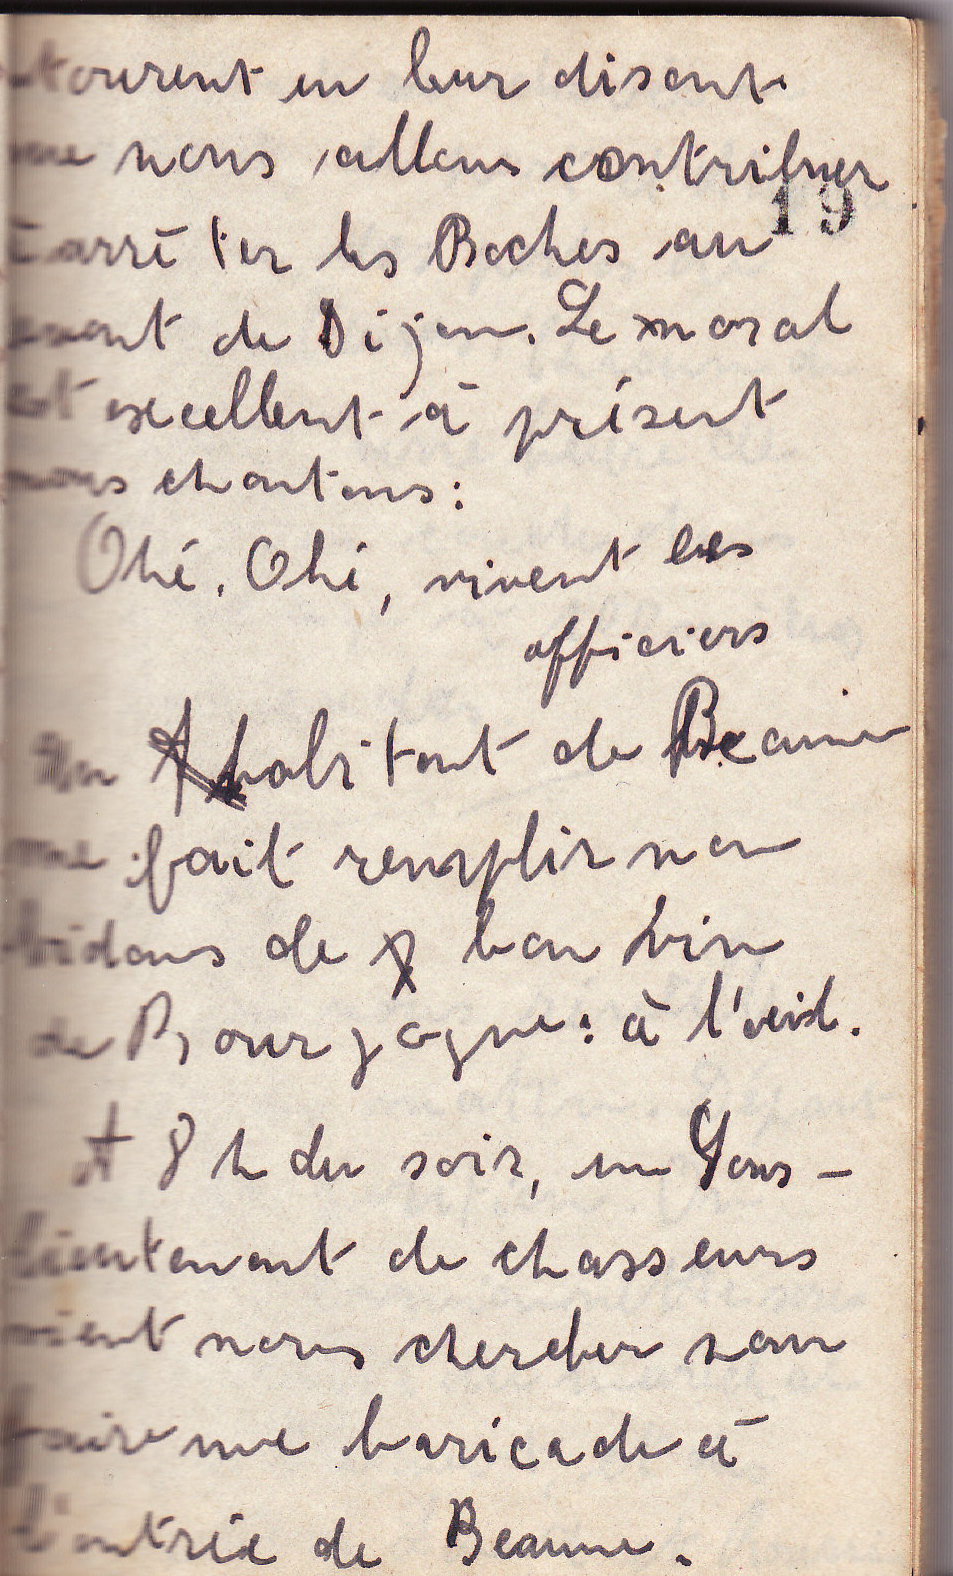 tourent en leur disant
que nous allons contribuer
19
à arrêter les Boches au
avant de Dijon. Le moral
est excellent à présent
nous chantons:
Ohé. Ohé, vivent les
officiers
Un habitant de Beaune
me fait remplir mon
bidons de bon vin
de Bourgogne: à l'œil.
A 8 h du soir, un Sous-
lieutenant de chasseurs
vient nous chercher pour
faire une baricade à
l'entrée de Beaune.